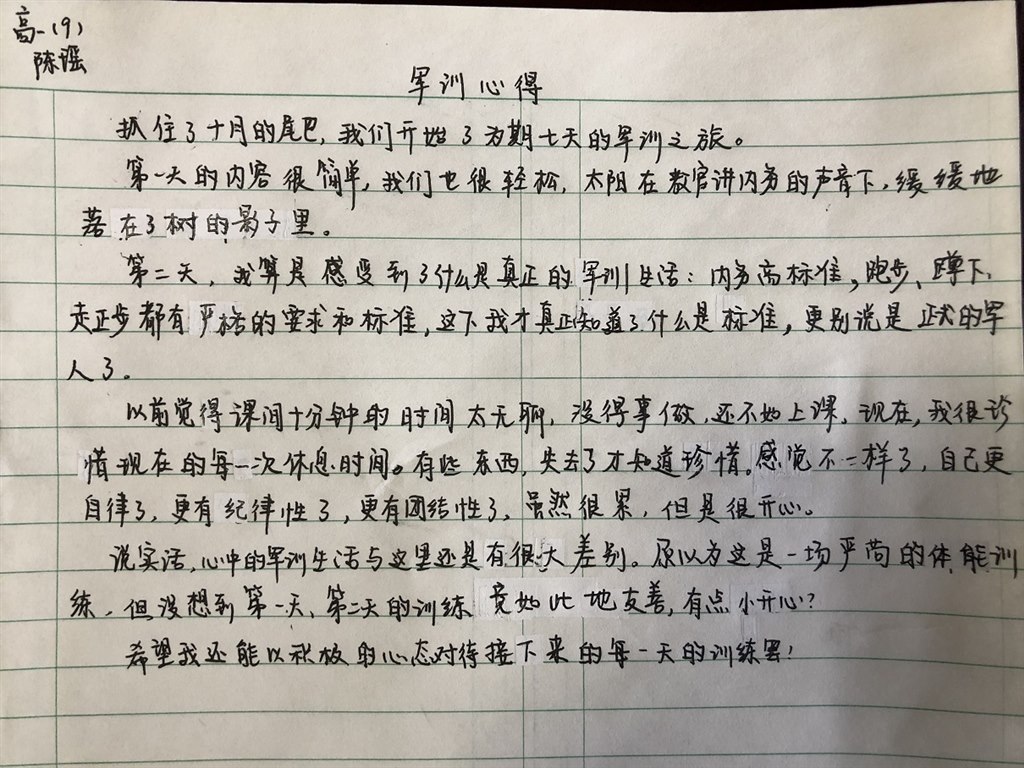 高一(9)
陈谣
军训心得
抓住了十月的尾巴,我们开始了为期七天的军训之旅。
第一天的内容很简单,我们也很轻松,太阳在教官讲内务的声音下,缓缓地
落在了树的影子里。
第二天,我算是感受到了什么是真正的军训生活:内务高标准,跑步、蹲下、
走正步都有严格的要求和标准,这下我才真正知道了什么是标准,更别说是正式的军
人了。
以前觉得课间十分钟的时间太无聊,没得事做,还不如上课,现在,我很珍
惜现在的每一次休息时间。有些东西,失去了才知道珍惜。感觉不一样了,自己更
自律了,更有纪律性了,更有团结性了,虽然很累,但是很开心。
说实话,心中的军训生活与这里还是有很大差别。原以为这是一场严苛的体能训
练,但没想到第一天、第二天的训练竟如此地友善,有点小开心?
希望我还能以积极的心态对待接下来的每一天的训练罢!